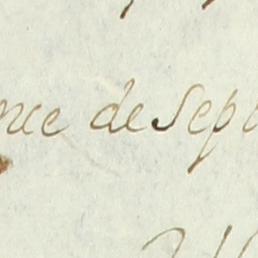 nce de Sep